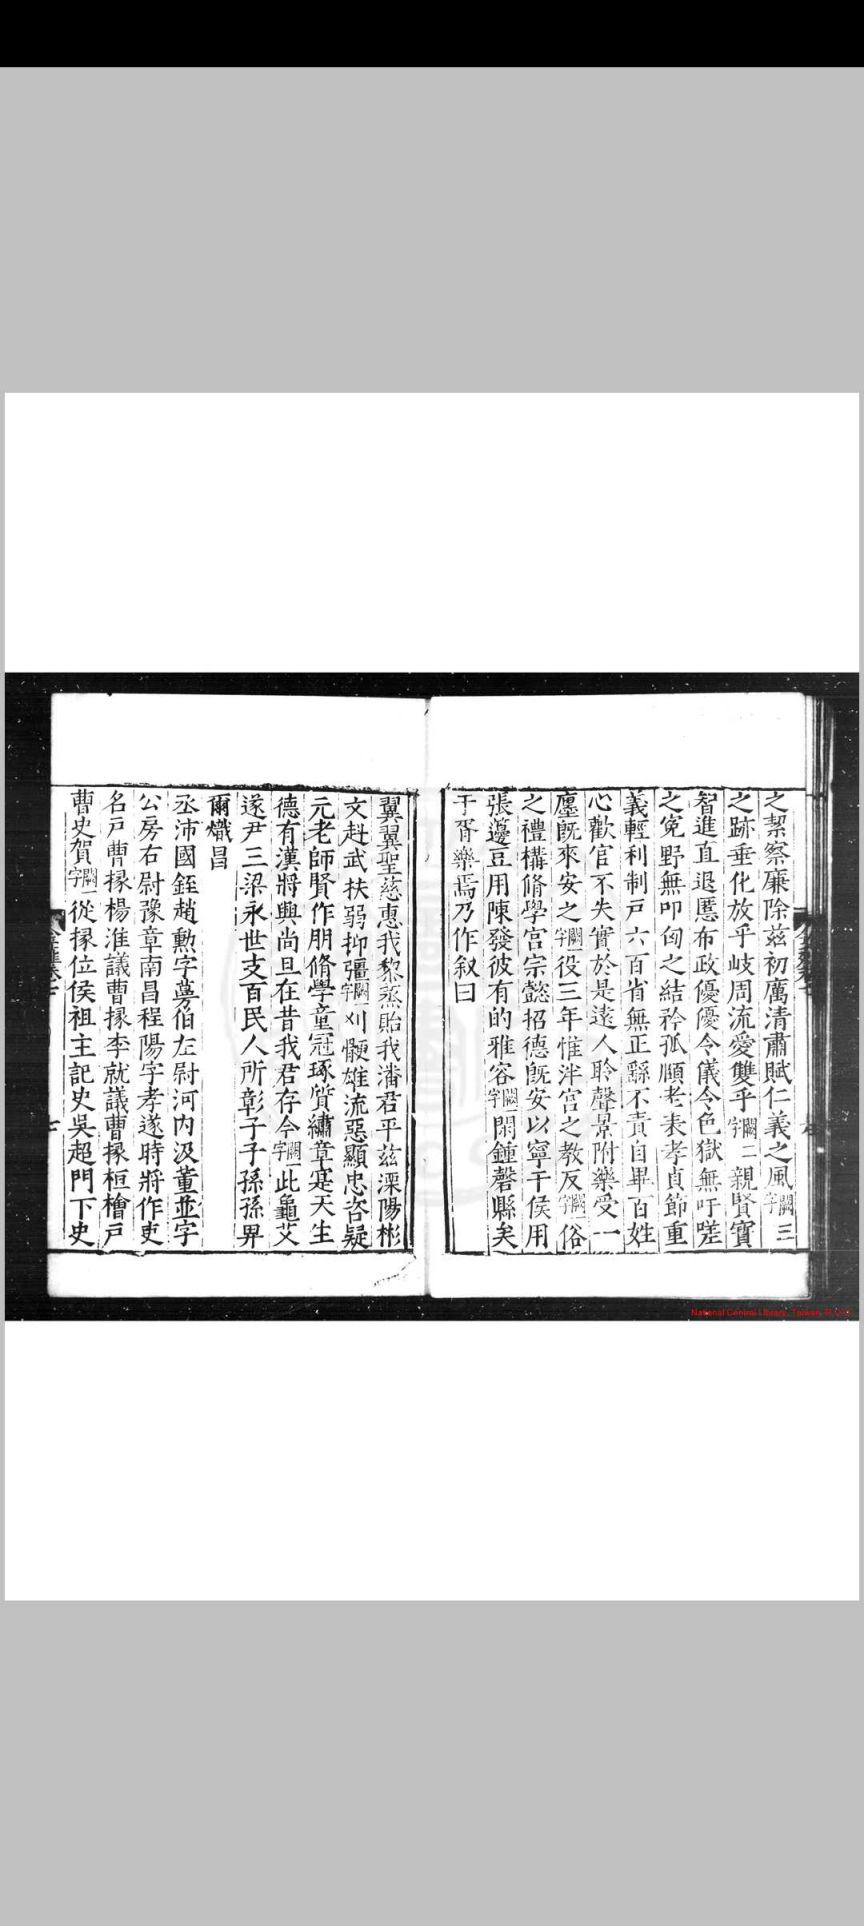 之絜察廉除茲初厲清肅賦仁義之風闕字三
之跡垂化放乎岐周流愛雙乎闕二字親賢寶
智進直退慝布政優優令儀令色獄無吁嗟
之冤野無叩匃之結矜孤頤老表孝貞節重
義輕利制戶六百省無正繇不責自畢百姓
心歡官不失實於是遠人聆聲景附樂受一
廛旣來安之闕一字役三年惟泮宮之教反闕一字俗
之禮構脩學宮宗懿招德旣安以寧干侯用
張籩豆用陳發彼有的雅容闕一字閑鍾磬縣矣
于胥樂焉乃作叙曰
翼翼聖慈惠我黎蒸貽我潘君平茲溧陽彬
文赳武扶弱抑彊闕一字刈骾雄流惡顯忠咨疑
元老師賢作朋脩學童冠琢質繡章寔天生
德有漢將興尚旦在昔我君存今闕一字此龜艾
遂尹三梁永世支百民人所彰子子孫孫畀
爾熾昌
丞沛國銍趙勳字蔓伯左尉河內汲董並字
公房右尉豫章南昌程陽字孝遂時將作吏
名戶曹掾楊淮議曹掾李就議曹掾桓檜戶
曹史賀闕一字從掾位侯祖主記史吳超門下史
National Central Library, Taiwan, R.O.C